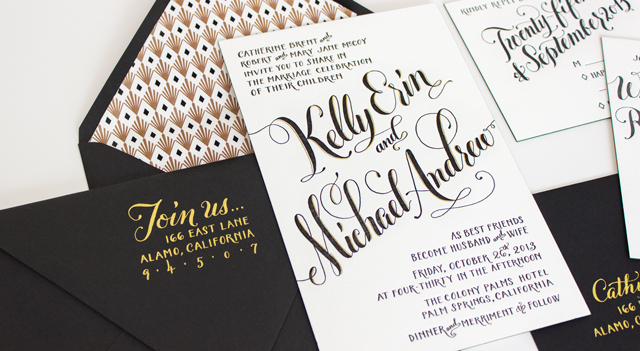 CATHERINE BRENT and
ROBERT and MARY JANE MCCOY
INVITE YOU TO SHARE IN
THE MARRIAGE CELEBRATION
OF THEIR CHILDREN
Kelly Erin
and
Michael Andrew
AS BEST FRIENDS
BECOME HUSBAND and WIFE
FRIDAY, OCTOBER 26th, 2013
AT FOUR-THIRTY IN THE AFTERNOON
THE COLONY PALMS HOTEL
PALM SPRINGS, CALIFORNIA
DINNER and MERRIMENT to FOLLOW
Join us...
166 EAST LANE
ALAMO, CALIFORNIA
9·4·5·0·7
KINDLY REPLY
Twenty fifth
of September 2013
M
166
ALAMO,